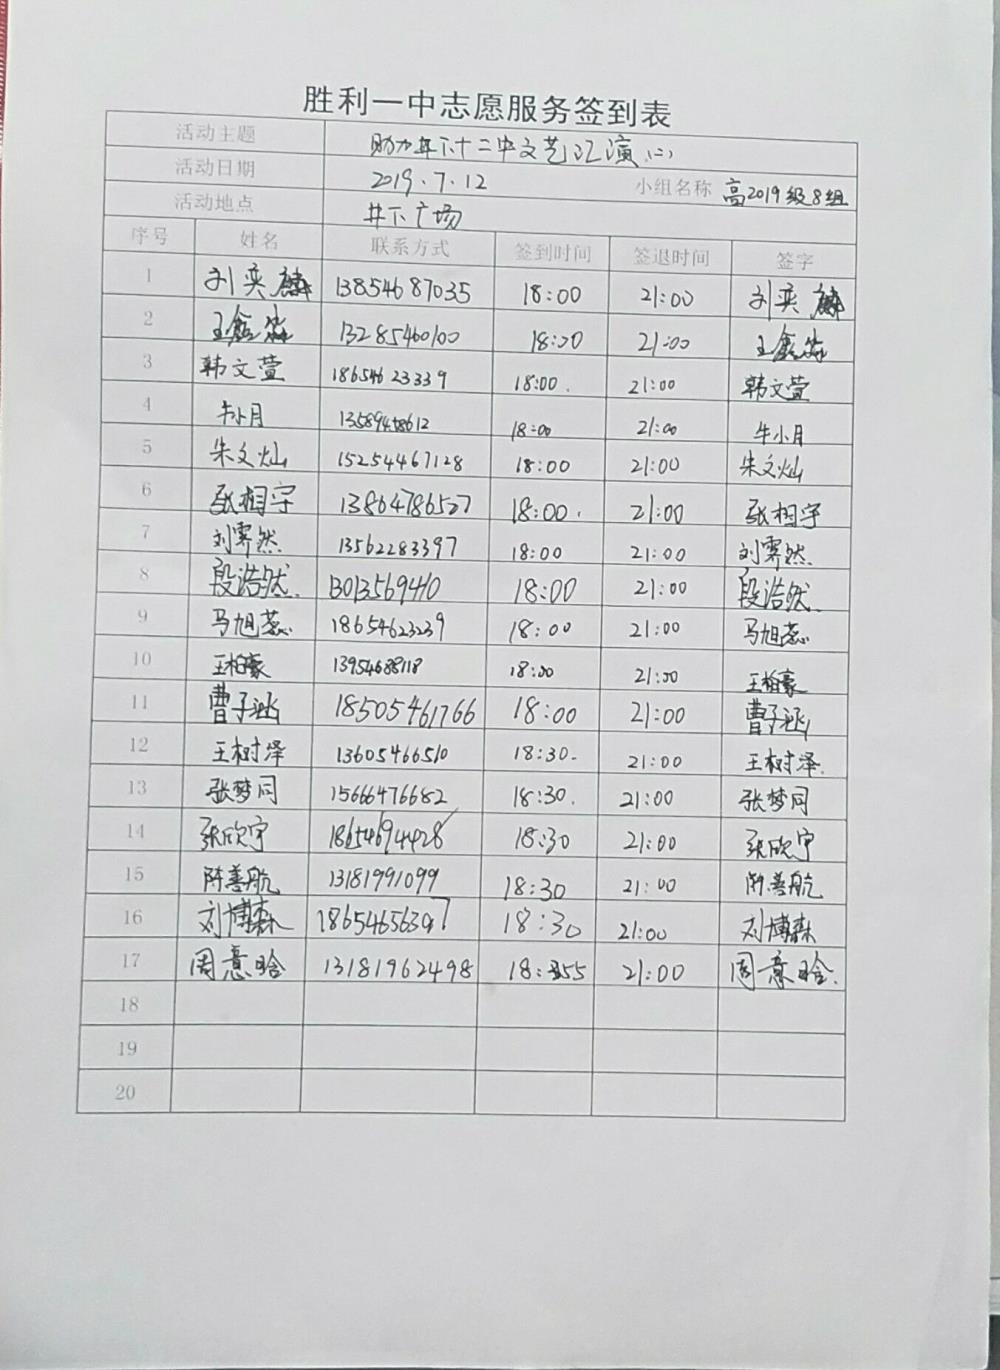 胜利一中志愿服务签到表
活动主题 助力井下十二中文艺汇演(二)
活动日期 2019.7.12 小组名称 高2019级8组
活动地点 井下广场
序号 姓名 联系方式 签到时间 签退时间 签字
1 刘奕麟 13854687035 18:00 21:00 刘奕麟
2 王鑫淼 13285460100 18:00 21:00 王鑫淼
3 韩文萱 18654623339 18:00. 21:00 韩文萱
4 牛小月 13589458612 18:00 21:00 牛小月
5 朱文灿 15254467128 18:00 21:00 朱文灿
6 张相宇 13864786527 18:00. 21:00 张相宇
7 刘霁然. 13562283397 18:00 21:00 刘霁然.
8 段浩然. 18:00 21:00 段浩然.
9 马旭蕊. 18654623239 18:00 21:00 马旭蕊.
10 王柏豪 13954688118 18:00 21:00 王柏豪
11 曹子涵 18505461766 18:00 21:00 曹子涵
12 王树泽 13605466510 18:30. 21:00 王树泽.
13 张梦同 15666476682 18:30. 21:00 张梦同
14 张欣宇 18654694428 18:30 21:00 张欣宇
15 陈善航 13181991099 18:30 21:00 陈善航
16 刘博森 18654656397 18:30 21:00 刘博森
17 周意晗 13181962498 18:55 21:00 周意晗.
18
19
20